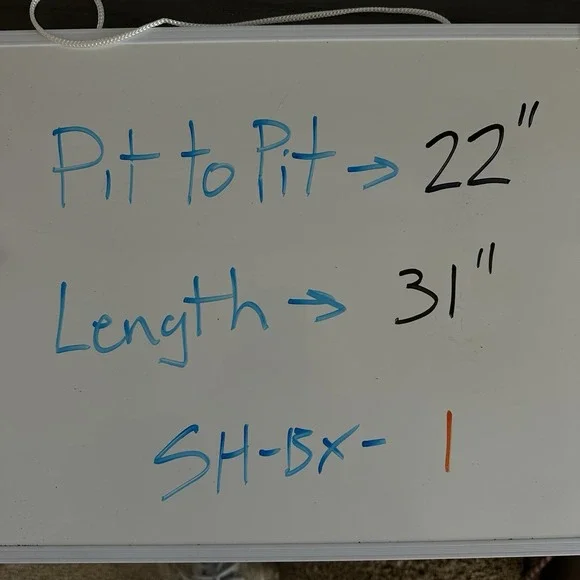 Pit to Pit → 22"
Length → 31"
SH-BX- 1